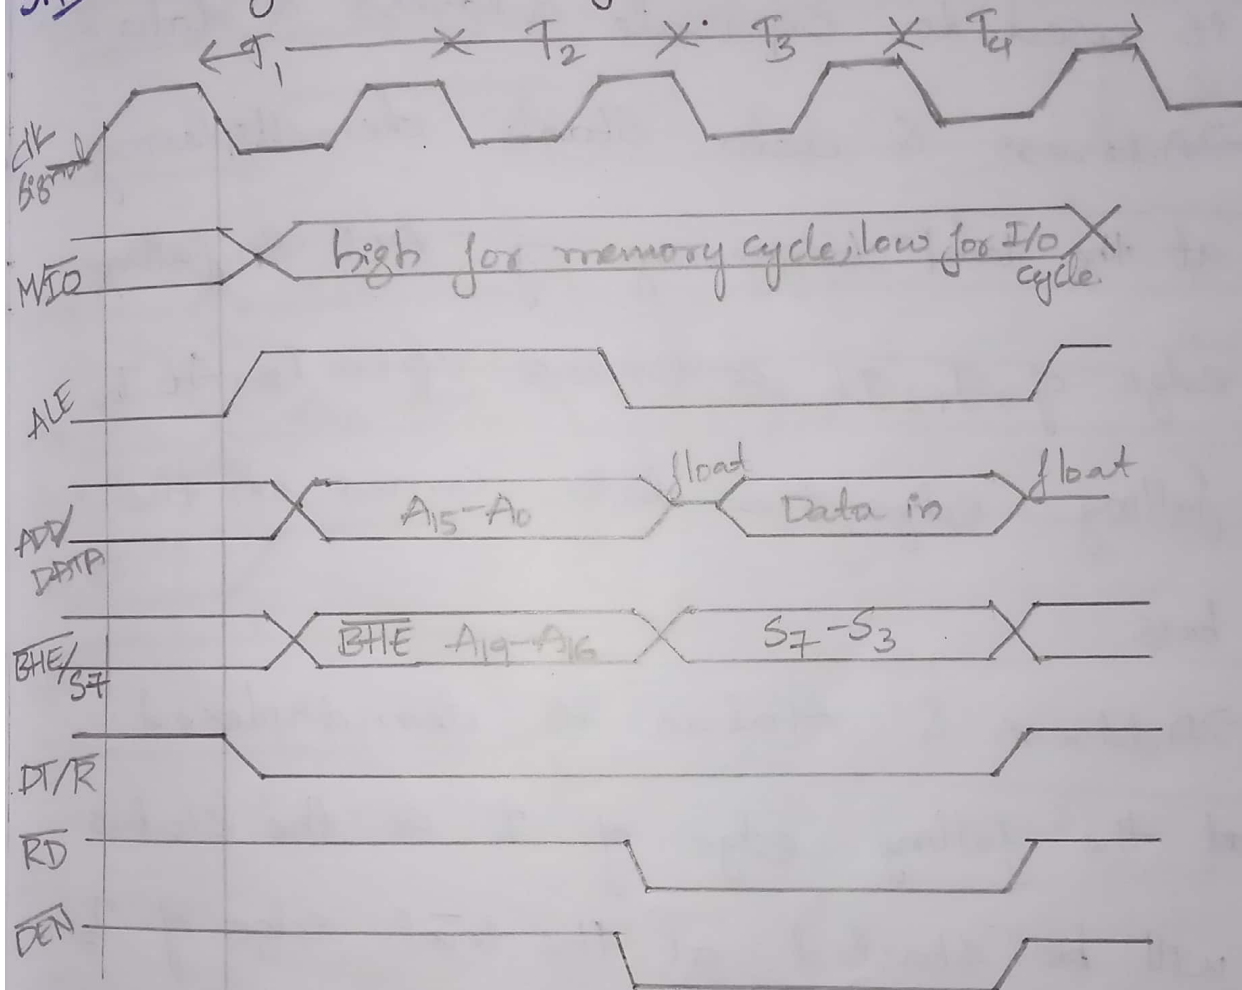 T1 T2 T3 T4
clk
signal
M/I̅O̅
high for memory cycle, low for I/O
cycle.
ALE
float
float
ADD/
DATA
A15-A0
Data in
B̅H̅E̅/
S7
B̅H̅E̅ A19-A16
S7-S3
DT/R̅
R̅D̅
D̅E̅N̅